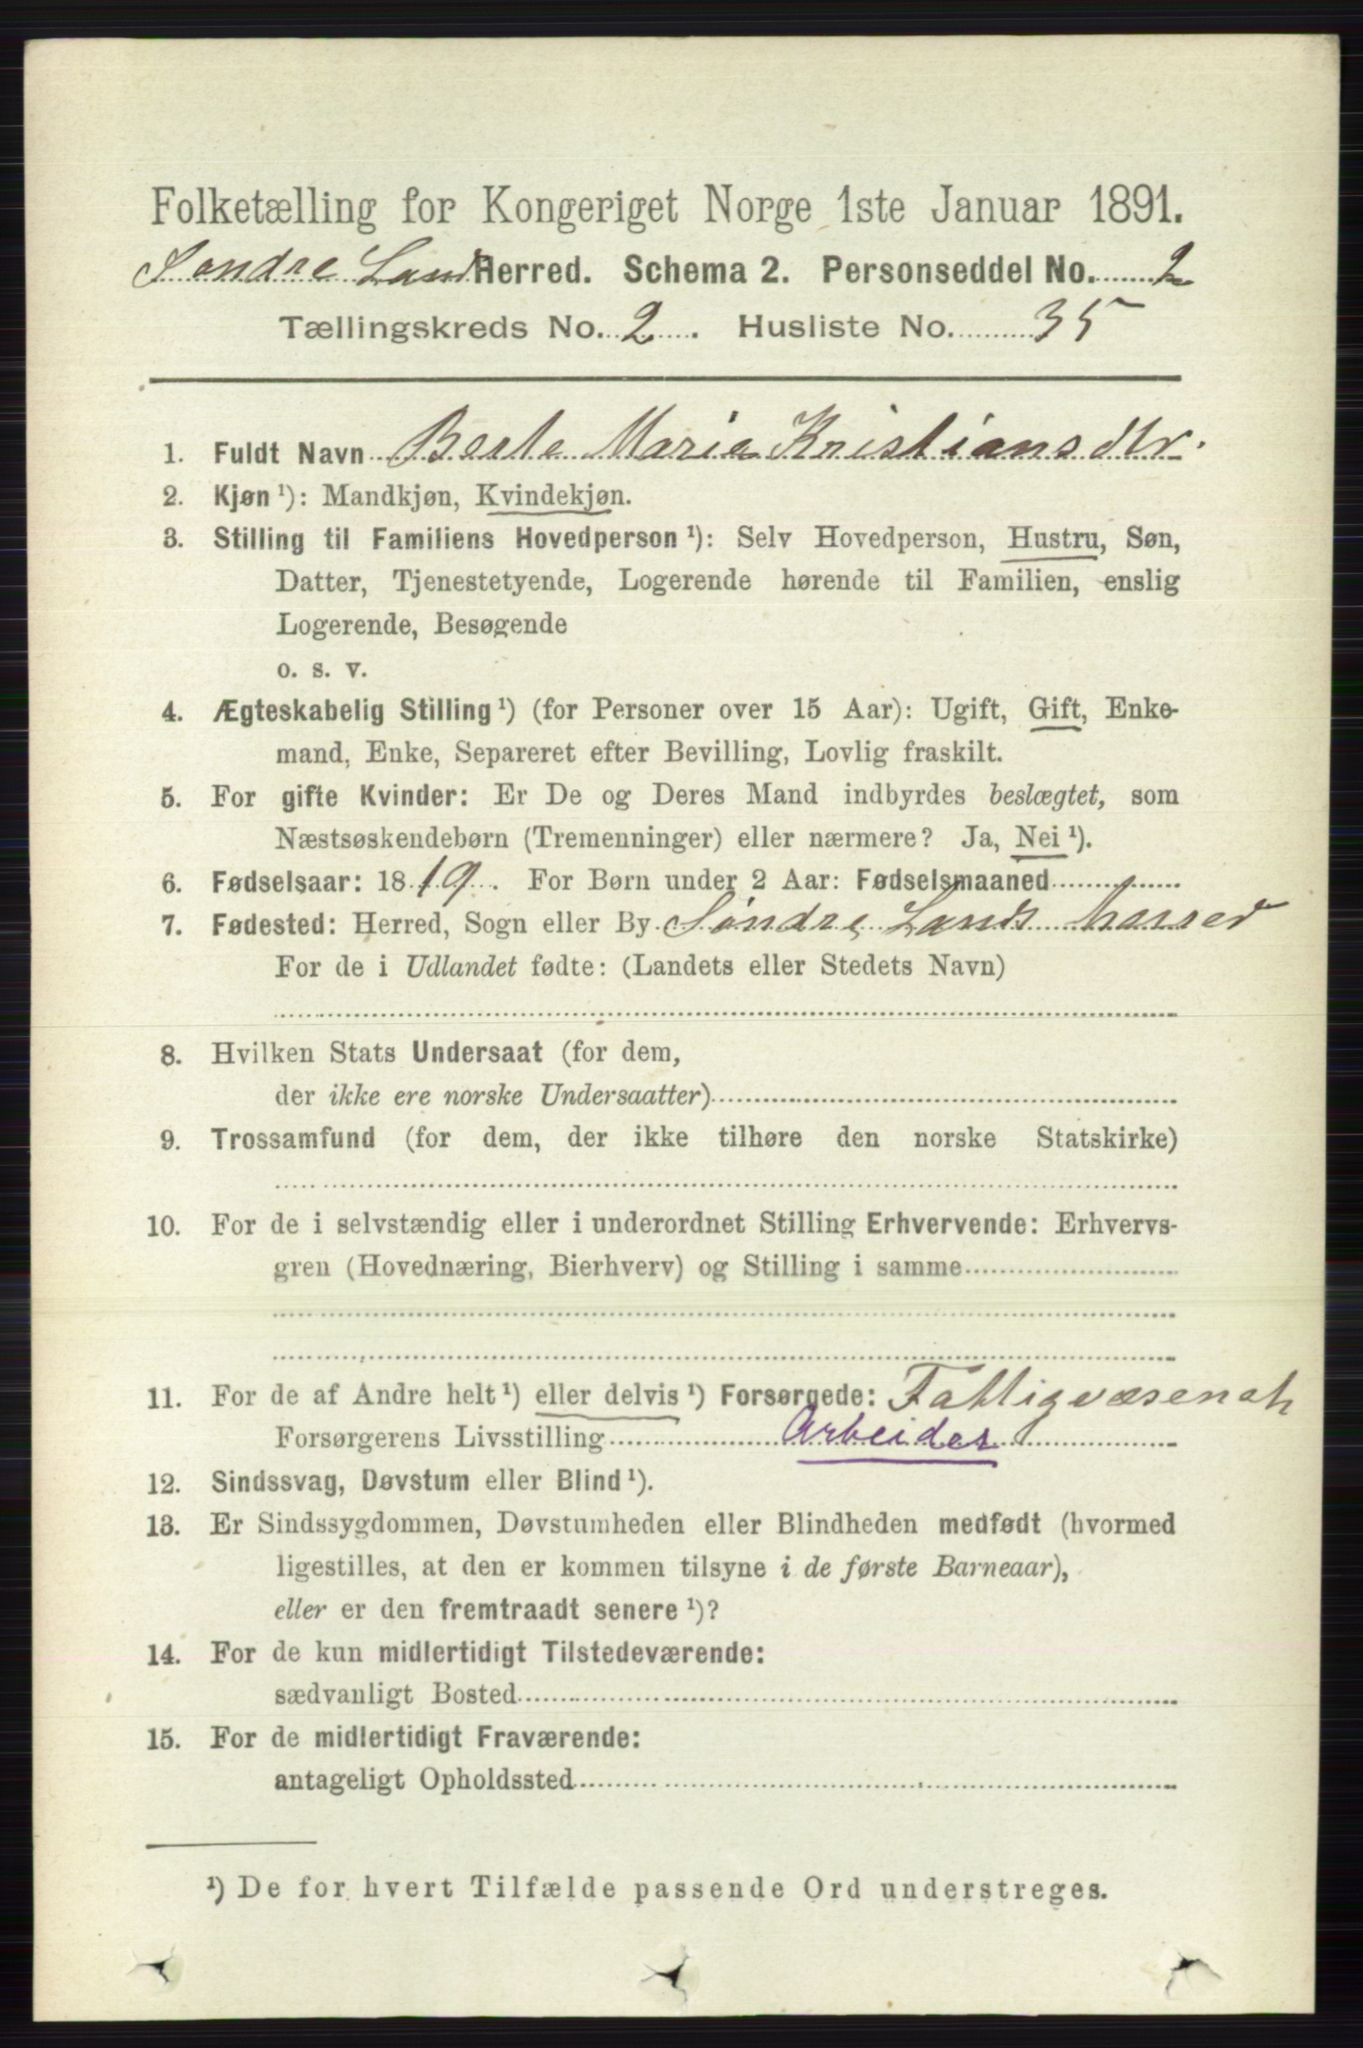 Folketælling for Kongeriget Norge 1ste Januar 1891.
Søndre Land Herred. Schema 2. Personseddel No. 2
Tællingskreds No. 2. Husliste No. 35
1. Fuldt Navn Berte Maria Kristiansdtr.
2. Kjøn ¹): Mandkjøn, Kvindekjøn.
3. Stilling til Familiens Hovedperson ¹): Selv Hovedperson, Hustru, Søn,
Datter, Tjenestetyende, Logerende hørende til Familien, enslig
Logerende, Besøgende
o. s. v.
4. Ægteskabelig Stilling ¹) (for Personer over 15 Aar): Ugift, Gift, Enke-
mand, Enke, Separeret efter Bevilling, Lovlig fraskilt.
5. For gifte Kvinder: Er De og Deres Mand indbyrdes beslægtet, som
Næstsøskendebørn (Tremenninger) eller nærmere? Ja, Nei ¹).
6. Fødselsaar: 1819. For Børn under 2 Aar: Fødselsmaaned
7. Fødested: Herred, Sogn eller By Søndre Lands Herred
For de i Udlandet fødte: (Landets eller Stedets Navn)
8. Hvilken Stats Undersaat (for dem,
der ikke ere norske Undersaatter)
9. Trossamfund (for dem, der ikke tilhøre den norske Statskirke)
10. For de i selvstændig eller i underordnet Stilling Erhvervende: Erhvervs-
gren (Hovednæring, Bierhverv) og Stilling i samme
11. For de af Andre helt ¹) eller delvis ¹) Forsørgede: Fattigvæsenet
Forsørgerens Livsstilling Arbeider
12. Sindssvag, Døvstum eller Blind ¹).
13. Er Sindssygdommen, Døvstumheden eller Blindheden medfødt (hvormed
ligestilles, at den er kommen tilsyne i de første Barneaar),
eller er den fremtraadt senere ¹)?
14. For de kun midlertidigt Tilstedeværende:
sædvanligt Bosted
15. For de midlertidigt Fraværende:
antageligt Opholdssted
¹) De for hvert Tilfælde passende Ord understreges.